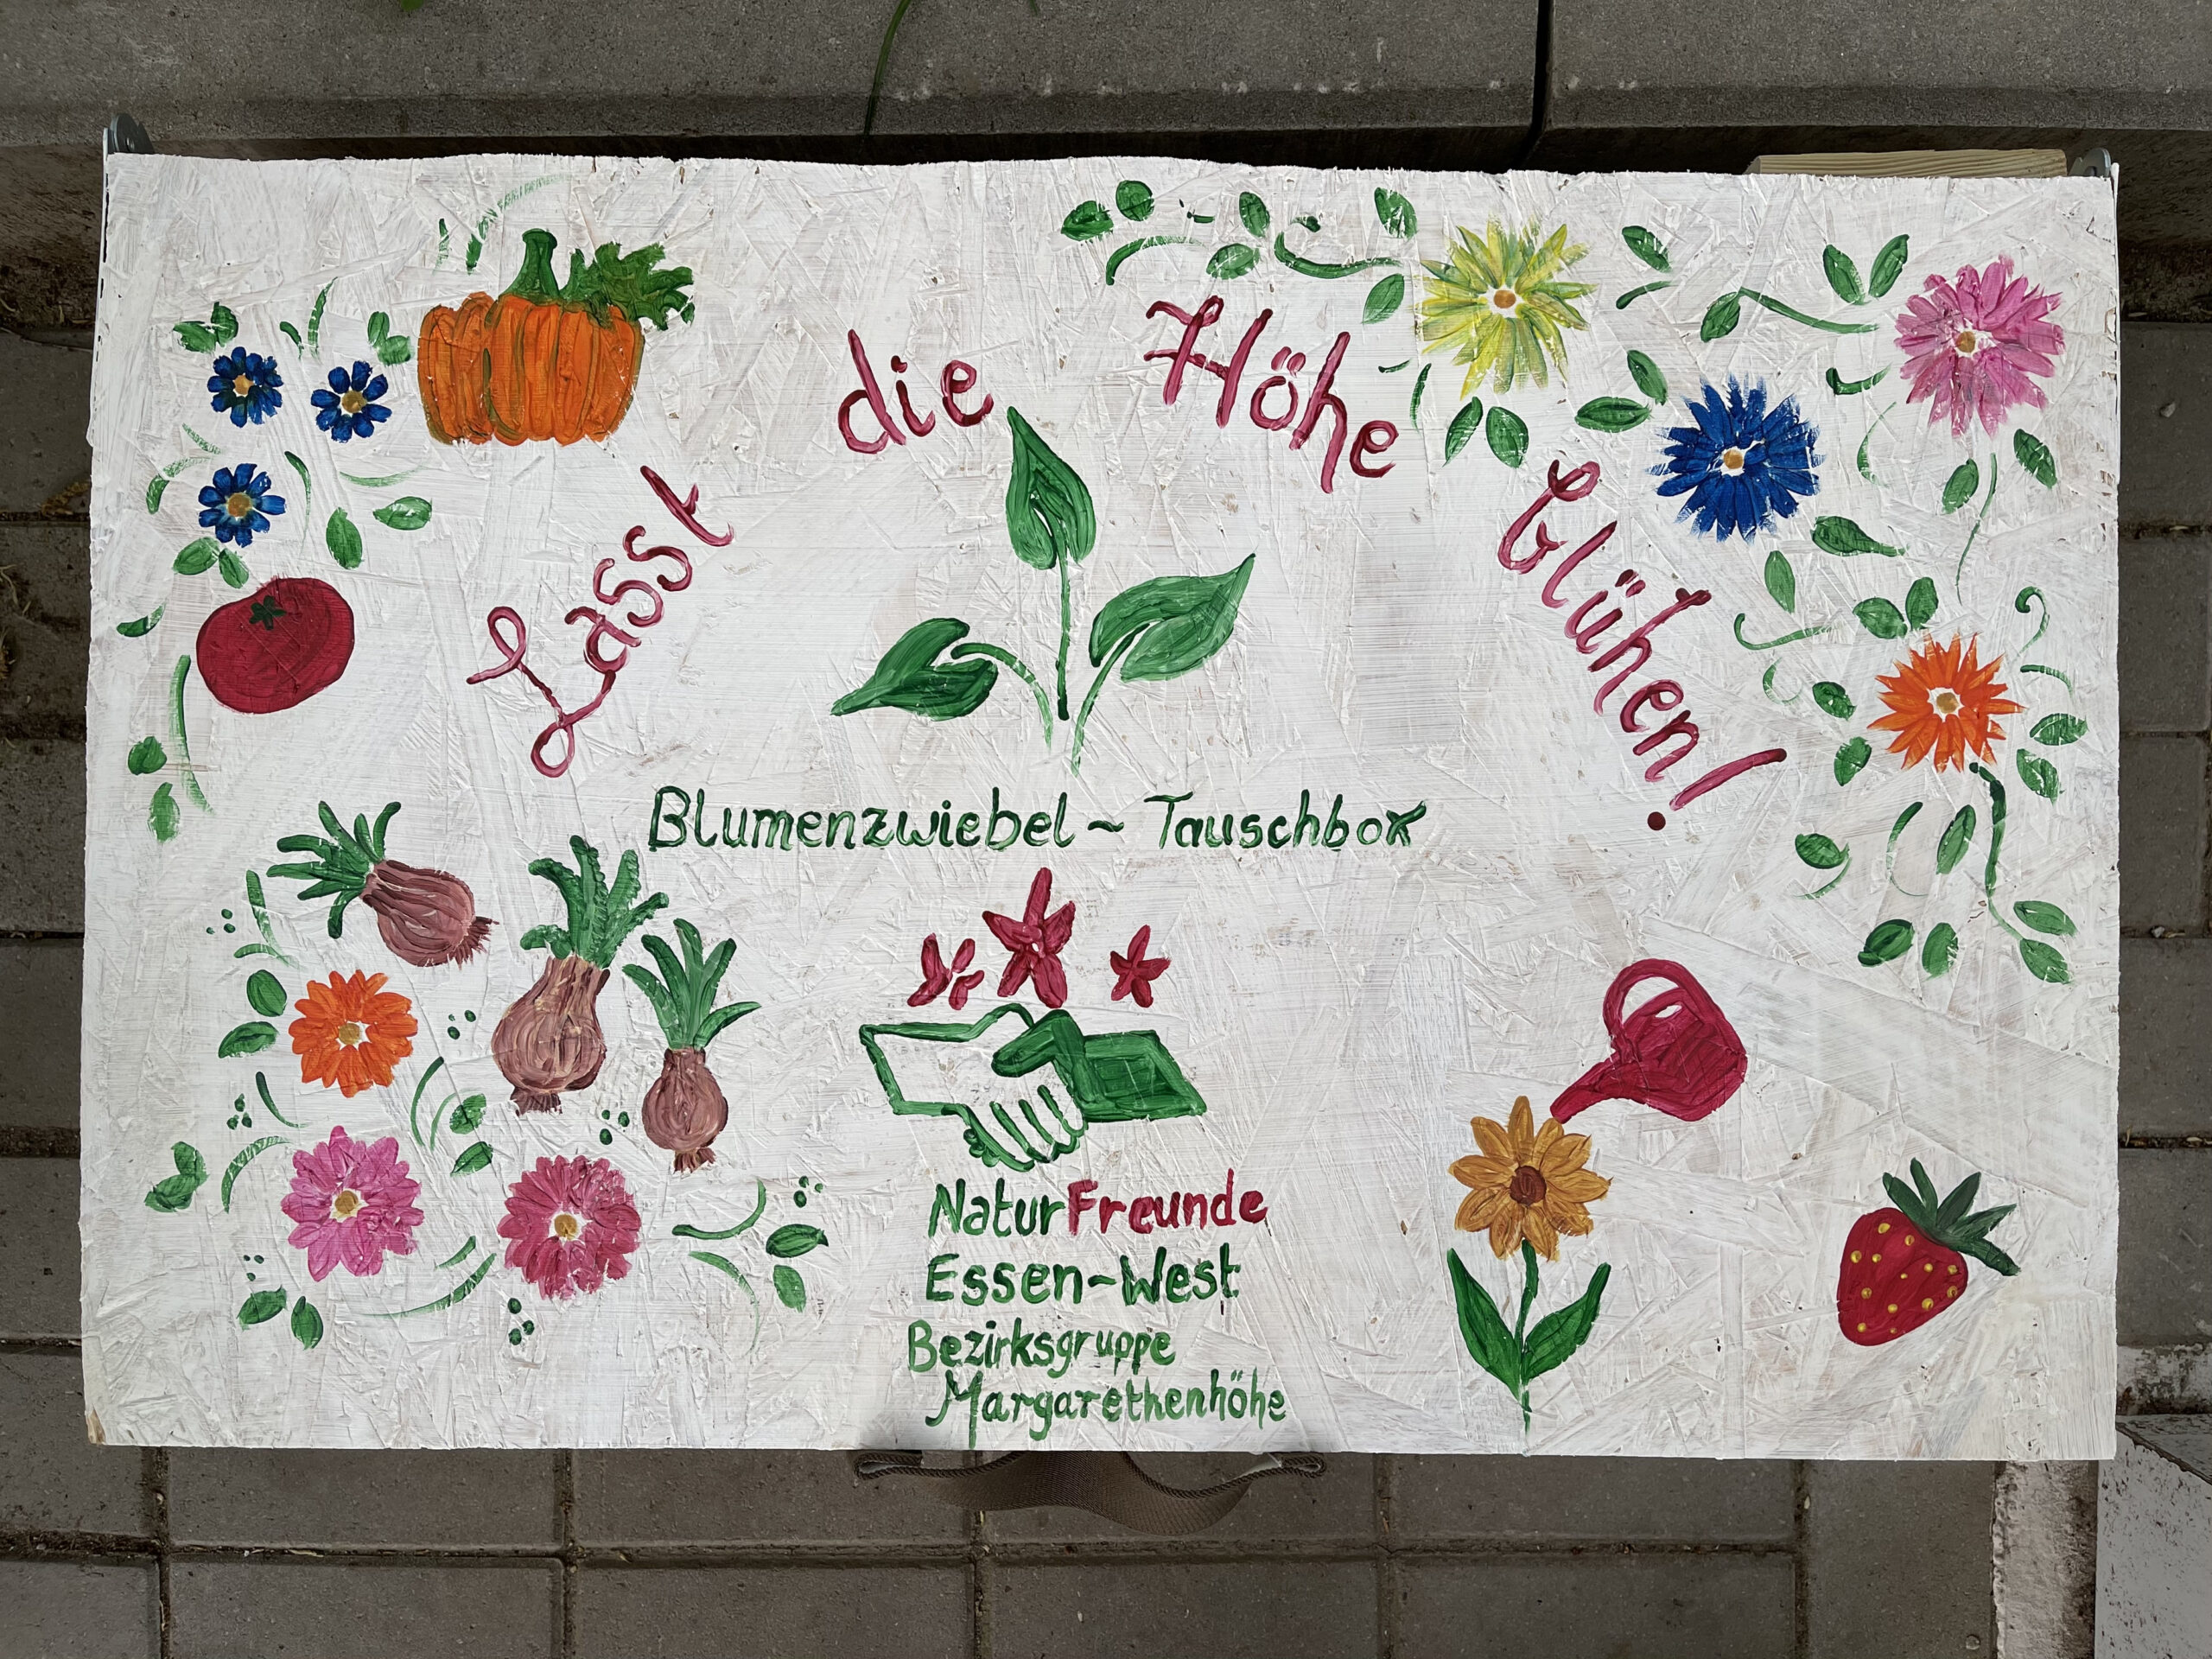 Lasst die Höhe blühen!
Blumenzwiebel ~ Tauschbox
NaturFreunde
Essen-West
Bezirksgruppe
Margarethenhöhe